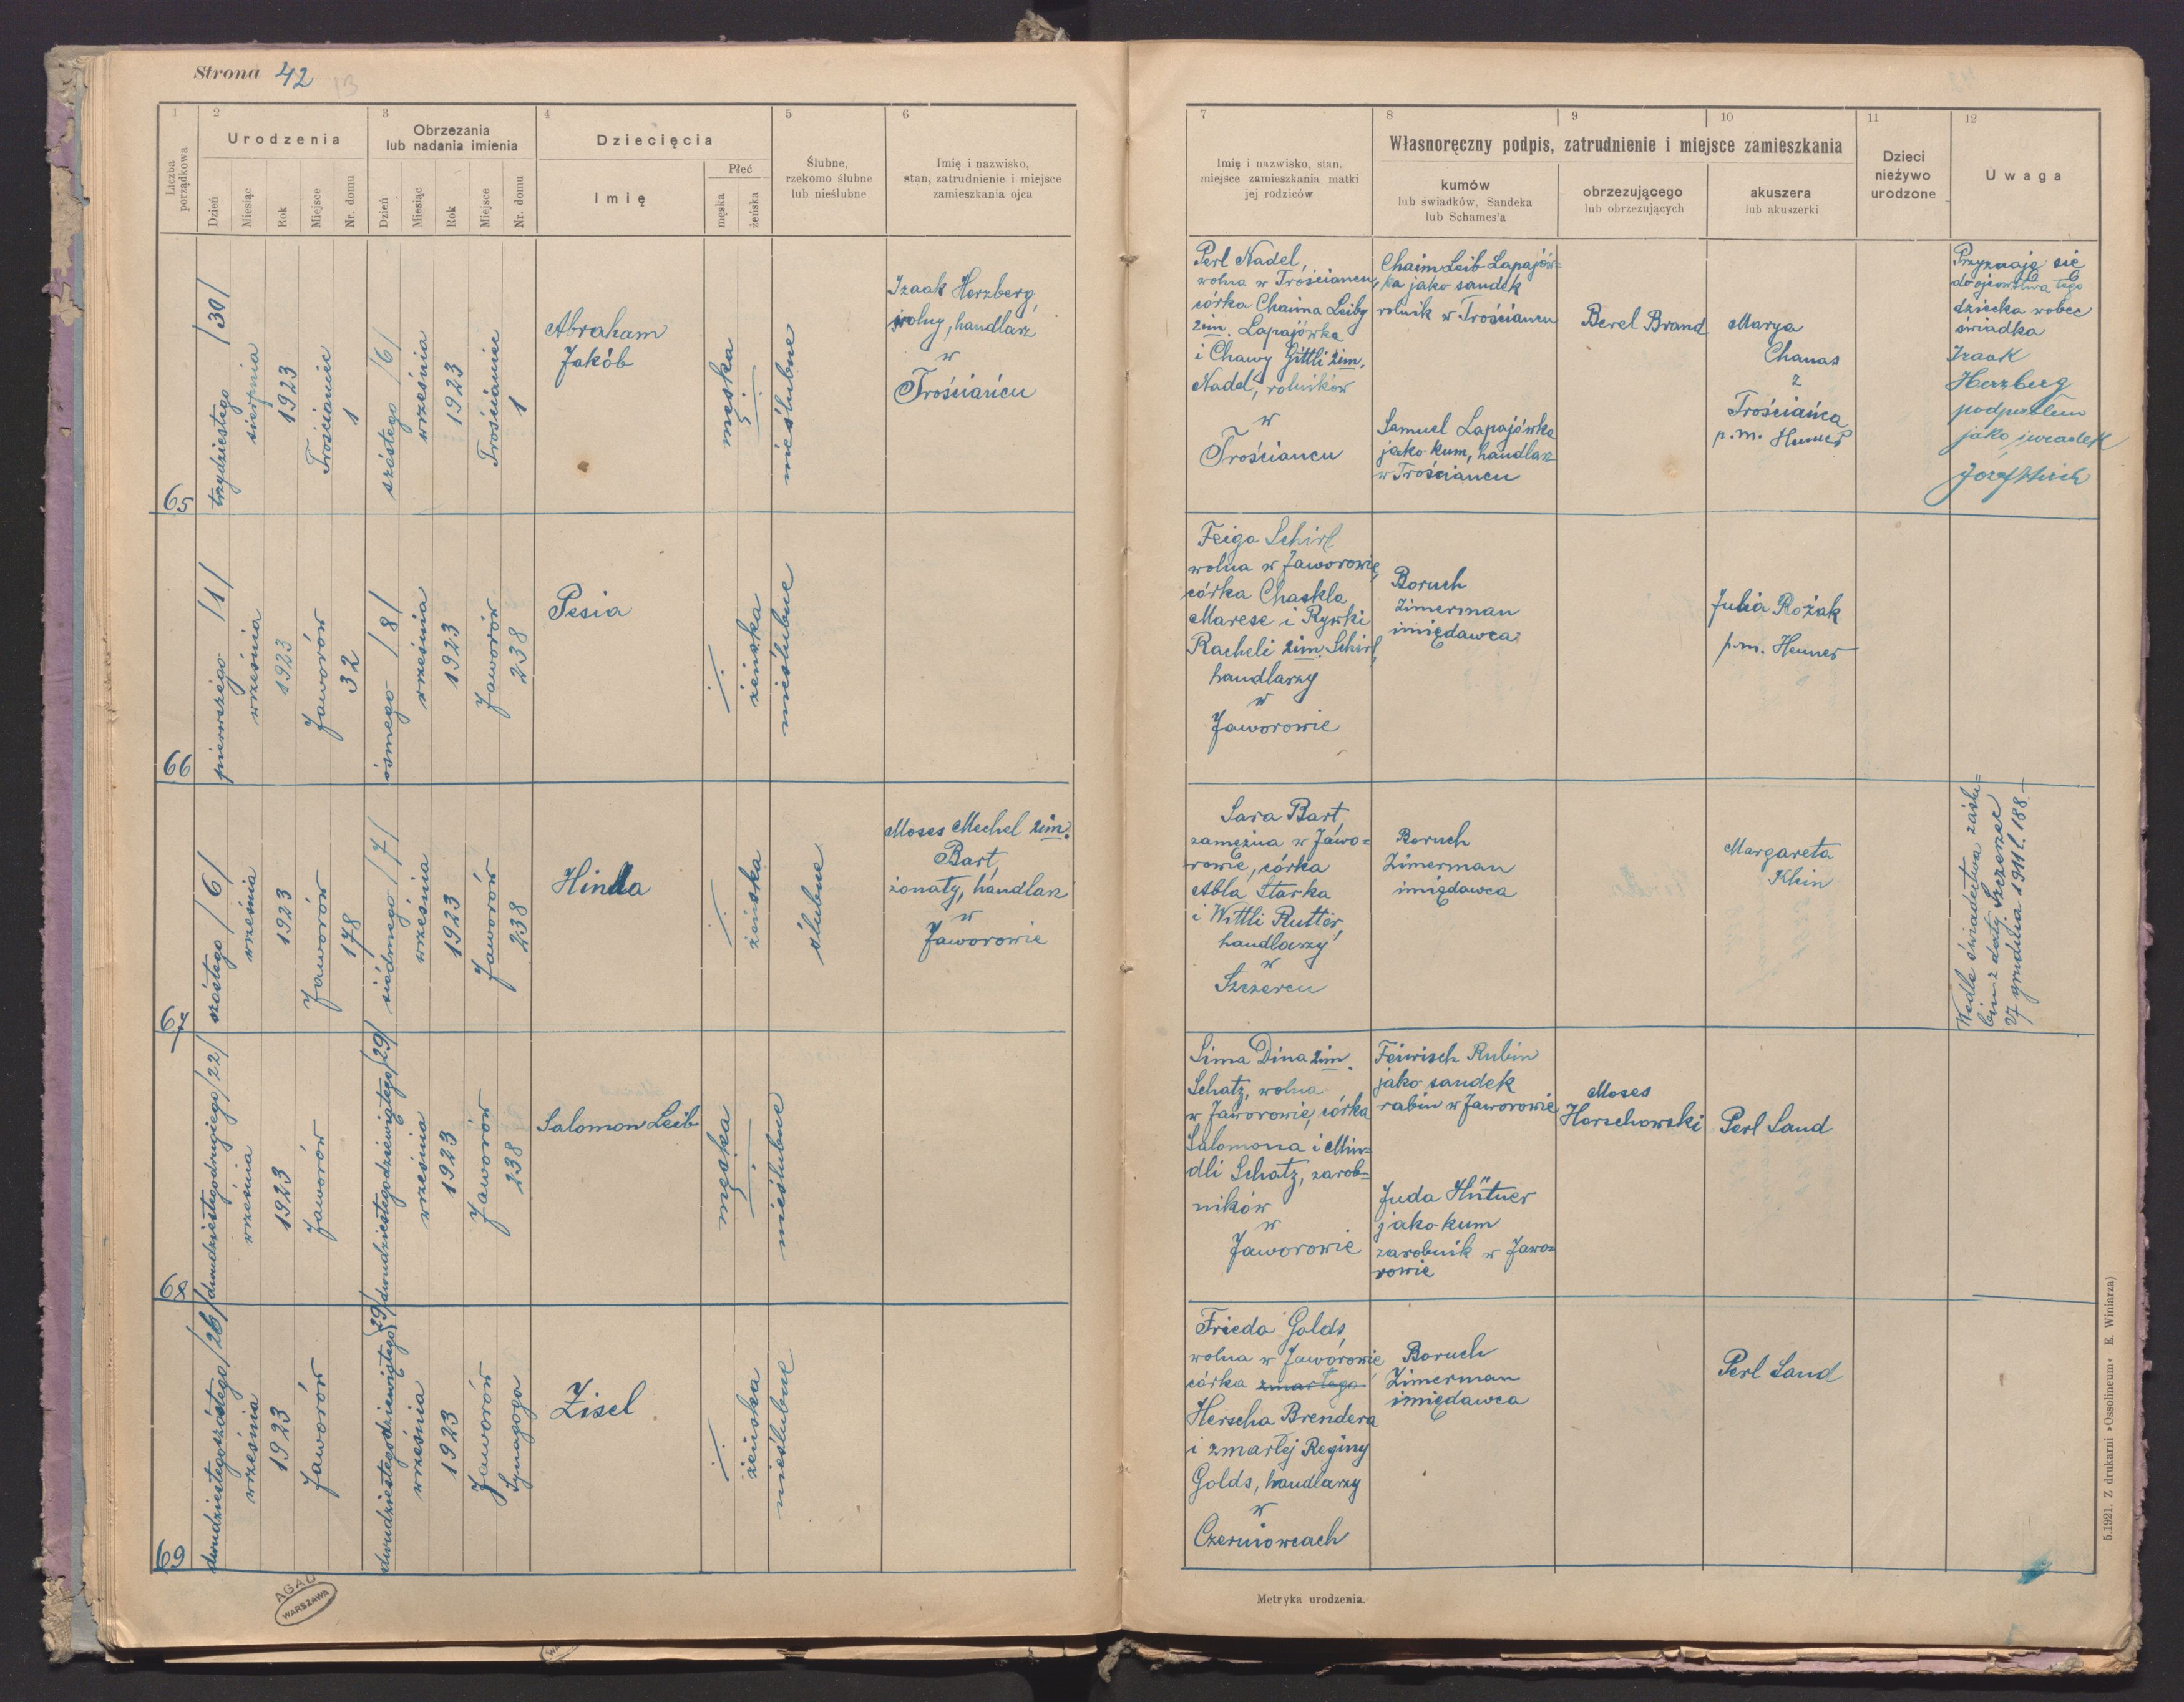 Strona 42
1
2
3
4
5
6
Liczba porządkowa
Urodzenia
Obrzezania
lub nadania imienia
Dziecięcia
Ślubne,
rzekomo ślubne
lub nieślubne
Imię i nazwisko,
stan, zatrudnienie i miejsce
zamieszkania ojca
Dzień
Miesiąc
Rok
Miejsce
Nr. domu
Dzień
Miesiąc
Rok
Miejsce
Nr. domu
Imię
Płeć
męska
żeńska
65
trzydziestego /30/
sierpnia
1923
Trościaniec
1
szóstego /6/
września
1923
Trościaniec
1
Abraham
Jakób
męska
nieślubne
Izaak Herzberg,
wolny, handlarz
w
Trościańcu
66
pierwszego /1/
września
1923
Jaworów
32
ósmego /8/
września
1923
Jaworów
238
Pesia
żeńska
nieślubne
67
szóstego /6/
września
1923
Jaworów
178
siódmego /7/
września
1923
Jaworów
238
Hinda
żeńska
ślubne
Moses Mechel 2im.
Bart,
żonaty, handlarz
w
Jaworowie
68
dwudziestegodrugiego /22/
września
1923
Jaworów
dwudziestegodziewiątego /29/
września
1923
Jaworów
238
Salomon Leib
męska
nieślubne
69
dwudziestegoszóstego /26/
września
1923
Jaworów
dwudziestegodziewiątego /29/
września
1923
Jaworów
Synagoga
Zisel
żeńska
nieślubne
AGAD
WARSZAWA
7
8
9
10
11
12
Imię i nazwisko, stan,
miejsce zamieszkania matki
jej rodziców
Własnoręczny podpis, zatrudnienie i miejsce zamieszkania
kumów
lub świadków, Sandeka
lub Schames'a
obrzezującego
lub obrzezujących
akuszera
lub akuszerki
Dzieci
nieżywo
urodzone
Uwaga
Perl Nadel,
wolna w Trościańcu,
córka Chaima Leiby
2im. Lapajówka
i Chawy Gittli 2im.
Nadel, rolników
w
Trościancu
Chaim Leib Lapajów=
ka jako sandek
rolnik w Trościancu
Samuel Lapajówka
jako kum, handlarz
w Trościancu
Berel Brand
Marya
Chanas
z
Trościańca
p.m. Henner
Przyznaję się
do ojcowstwa tego
dziecka wobec
świadka
Izaak
Herzberg
jako
Feiga Schirl
wolna w Jaworowie,
córka Chaskla
Marese i Rywki
Racheli 2im. Schirl,
handlarzy
w
Jaworowie
Boruch
Zimerman
imiędawca
Julia Rożak
p.m. Henner
Sara Bart,
zamężna w Jawo=
rowie, córka
Abla Starka
i Wittli Rutter,
handlarzy
w
Szczercu
Boruch
Zimerman
imiędawca
Margareta
Klein
Wedle świadectwa zaślu=
bin z daty Szczerzec
27 grudnia 1911 l. 188.-
Sima Dina 2im.
Schatz, wolna
w Jaworowie, córka
Salomona i Min=
dli Schatz, zarob=
ników
w
Jaworowie
Feiwisch Rubin
jako sandek
rabin w Jaworowie
Juda Hütner
jako kum
zarobnik w Jawo=
rowie
Moses
Horschowski
Perl Sand
Frieda Golds,
wolna w Jaworowie,
córka zmarłego
Herscha Brendera
i zmarłej Reginy
Golds, handlarzy
w
Czerniowcach
Boruch
Zimerman
imiędawca
Perl Sand
Metryka urodzenia.
5.1921. Z drukarni »Ossolineum« E. Winiarza)